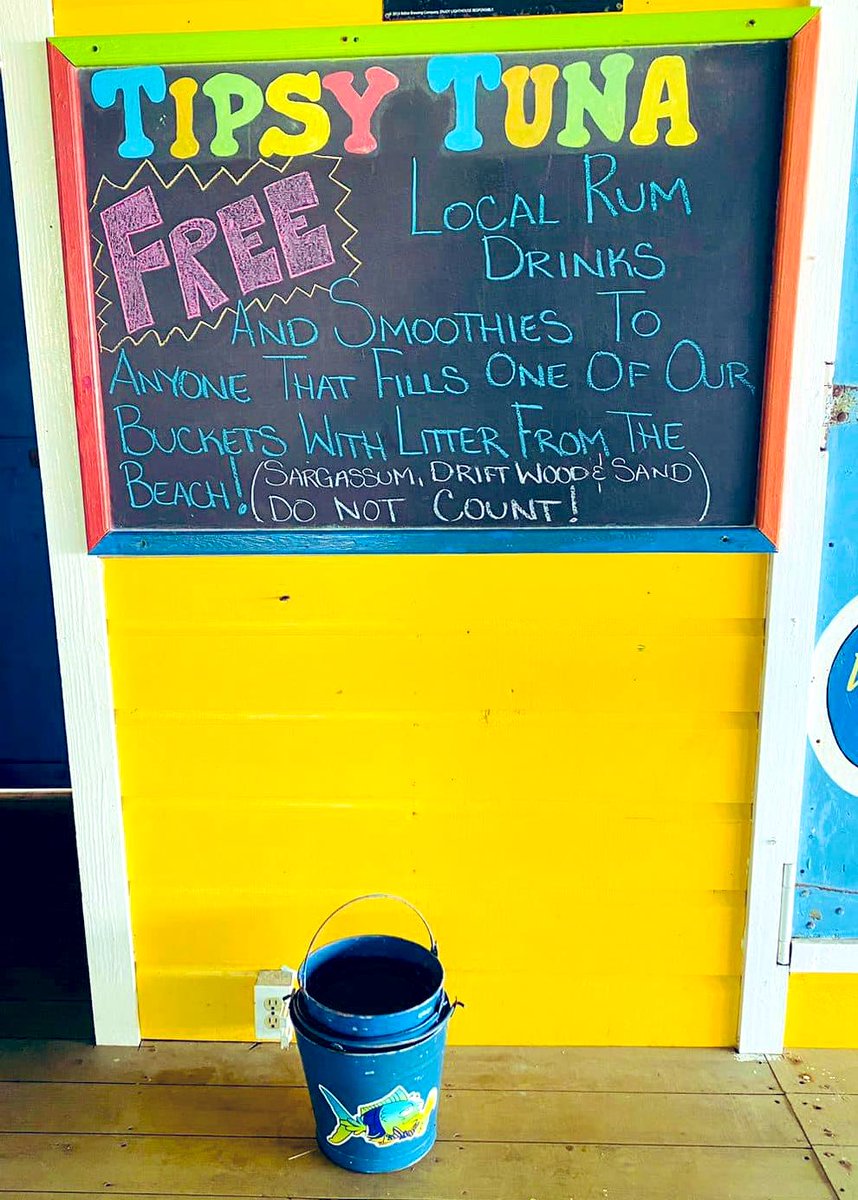 © 2013 Belize Brewing Company. ENJOY LIGHTHOUSE RESPONSIBLY.
TIPSY TUNA
FREE LOCAL RUM
DRINKS
AND SMOOTHIES TO
ANYONE THAT FILLS ONE OF OUR
BUCKETS WITH LITTER FROM THE
BEACH! (SARGASSUM, DRIFT WOOD & SAND)
DO NOT COUNT!